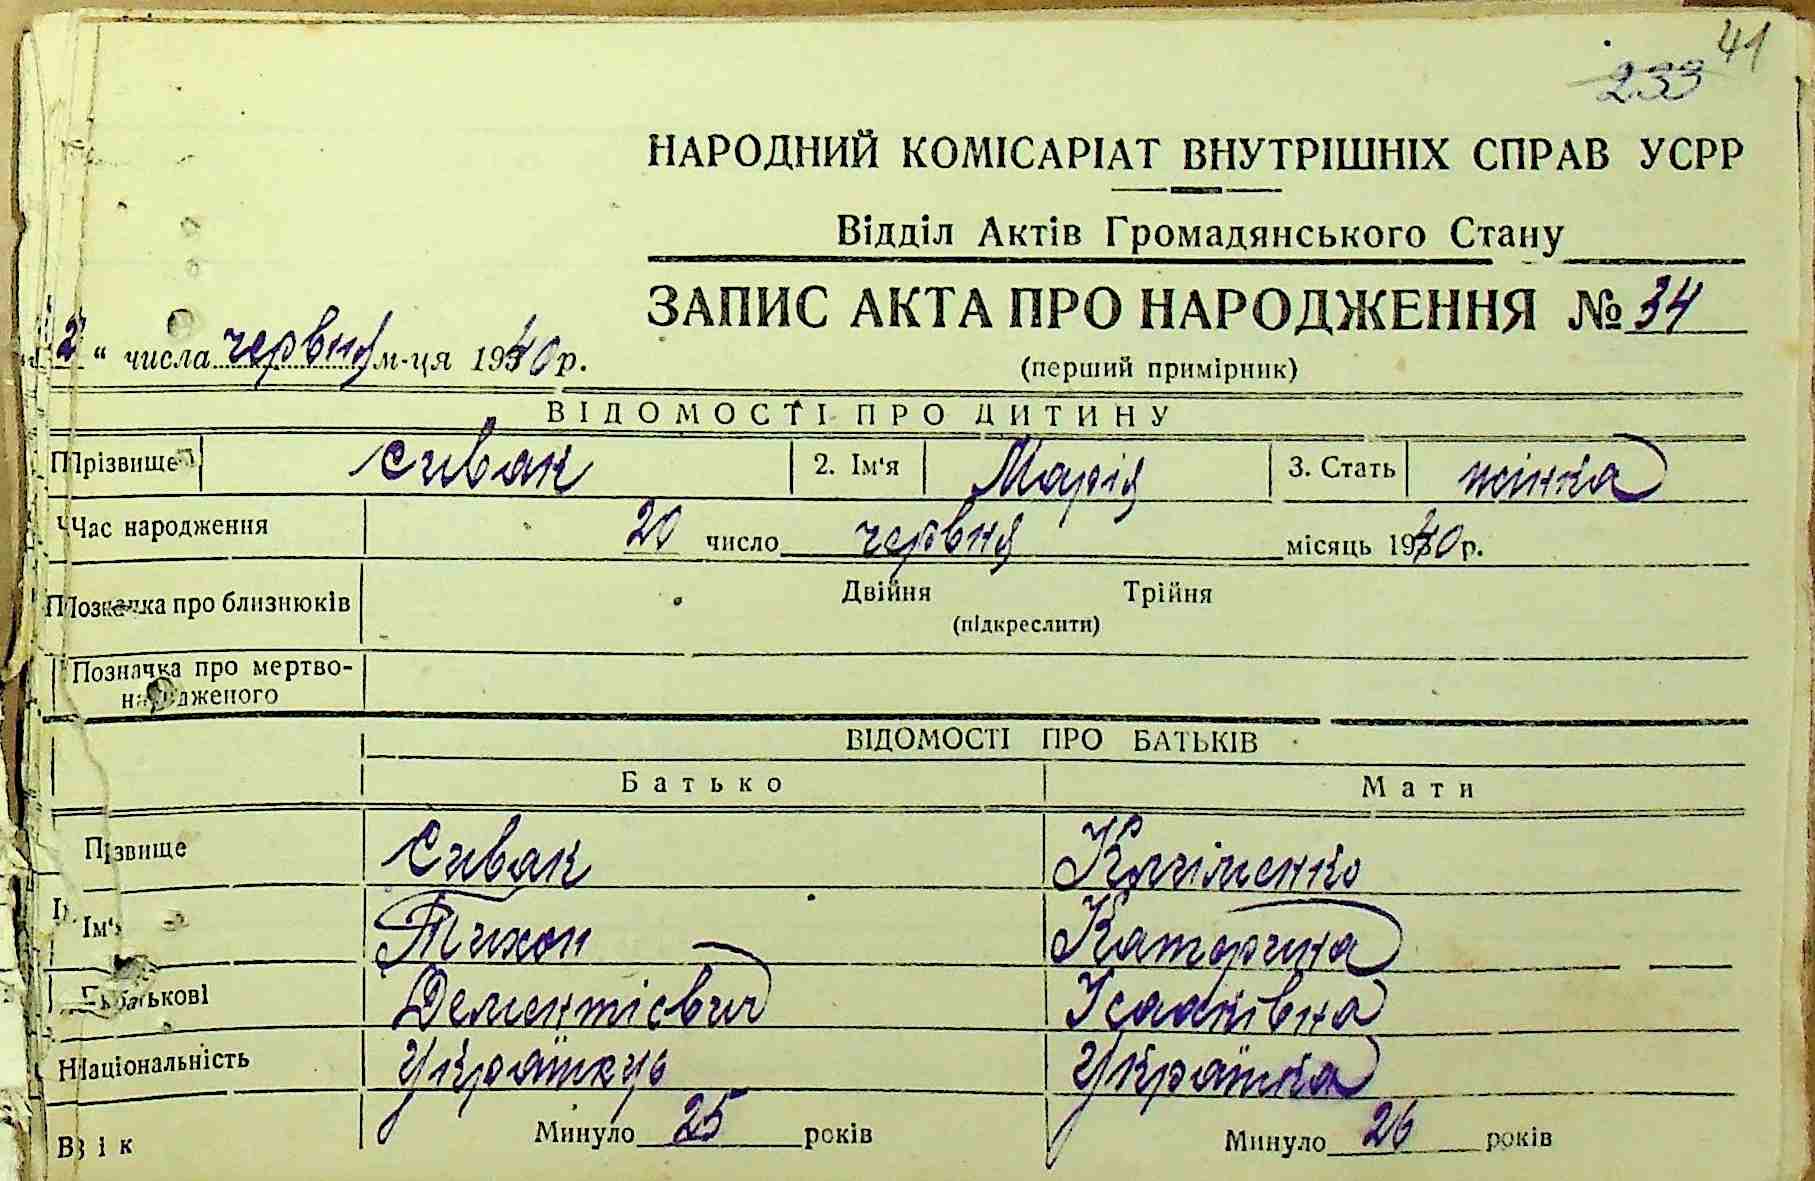 41
233
НАРОДНИЙ КОМІСАРІАТ ВНУТРІШНІХ СПРАВ УСРР
Відділ Актів Громадянського Стану
ЗАПИС АКТА ПРО НАРОДЖЕННЯ № 34
(перший примірник)
2 " числа червня м-ця 1940 р.
ВІДОМОСТІ ПРО ДИТИНУ
Прізвище Сивак 2. Ім'я Марія 3. Стать жінка
Час народження 20 число червня місяць 1940 р.
Позначка про близнюків Двійня Трійня
(підкреслити)
Позначка про мертво-
народженого
ВІДОМОСТІ ПРО БАТЬКІВ
Батько Мати
Прізвище Сивак Кліменко
Ім'я Тихон Катерина
По батькові Дементієвич Ісааківна
Національність Українць Українка
Вік Минуло 25 років Минуло 26 років